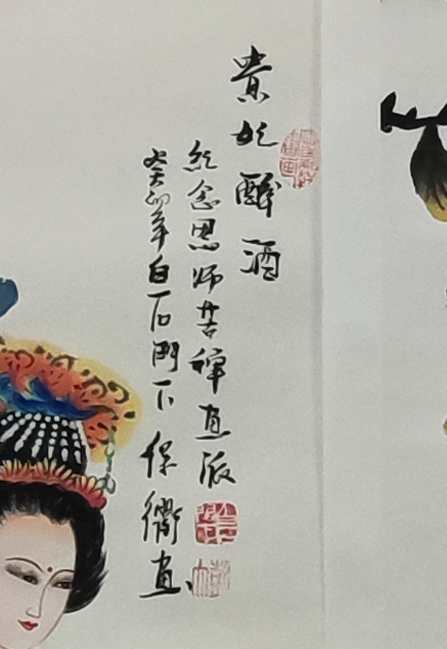 贵妃醉酒
纪念恩师苦禅画派
癸卯年白石门下保衢画